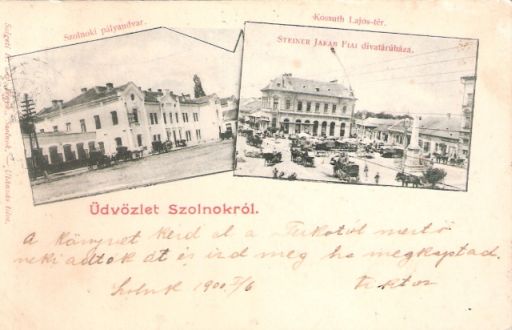 Szolnoki pályaudvar.
Kossuth Lajos-tér.
STEINER JAKAB FIAI divatárúháza.
Üdvözlet Szolnokról.
A könyvet kérd el a
neki adtok át és írd meg ha megkaptad.
Szolnok 1900 7/6